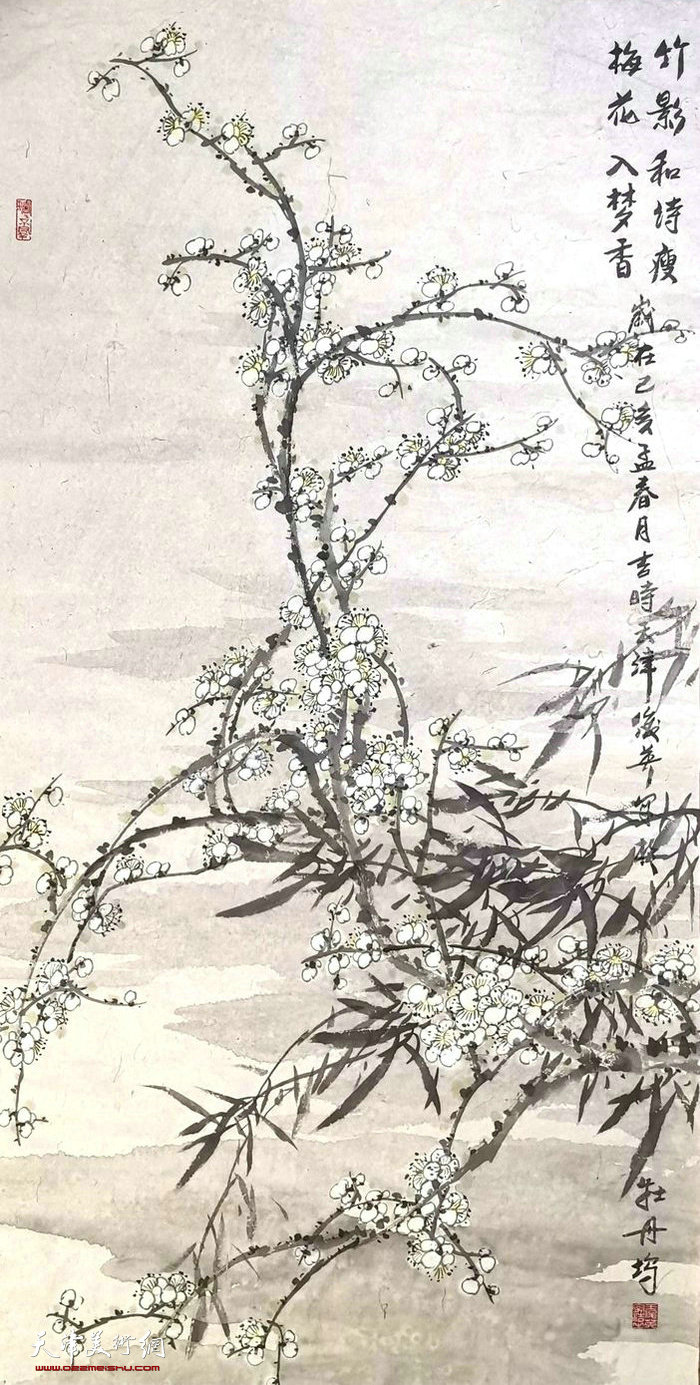 竹影和诗瘦
梅花入梦香
歲在己亥孟春月吉時天津
牡丹均
天津美術網
www.022meishu.com